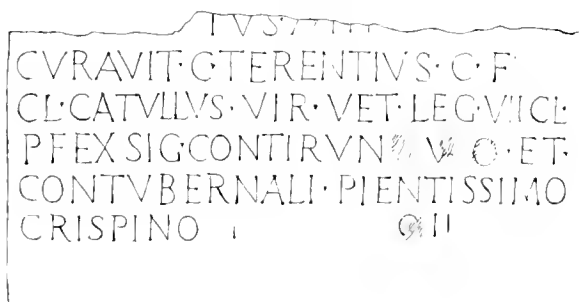 TVS
CVRAVIT·C·TERENTIVS·C·F
CL·CATVLLVS·VIR·VET·LEG·VIICL·
PFEXSIG·CONTIRVN O·ET·
CONTVBERNALI·PIENTISSIMO
CRISPINO